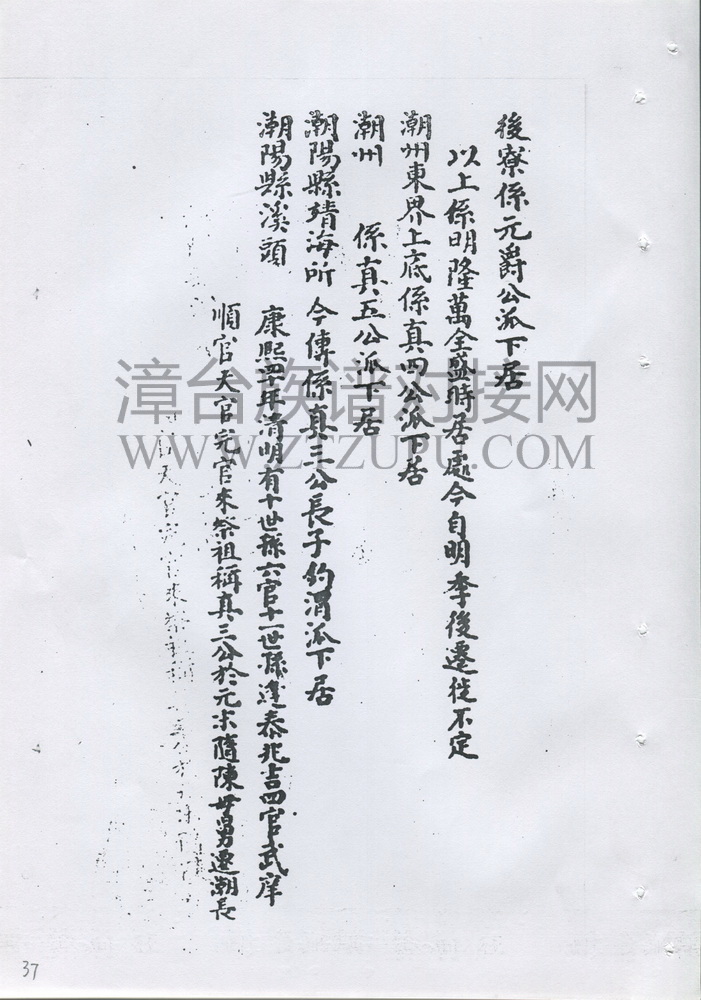 後寮係元爵公派下居
以上係明隆萬全盛時居處今自明季後遷徙不定
潮州東界上底係真四公派下居
潮州 係真五公派下居
潮陽縣靖海所 今傳係真三公長子約渭派下居
潮陽縣溪頭 康熙四十年清明有十世孫六官十一世孫逢泰兆吉四官武庠
順官天官完官來祭祖稱真三公於元末隨陳母舅遷潮長
漳台族谱对接网
WWW.ZTZUPU.COM
37